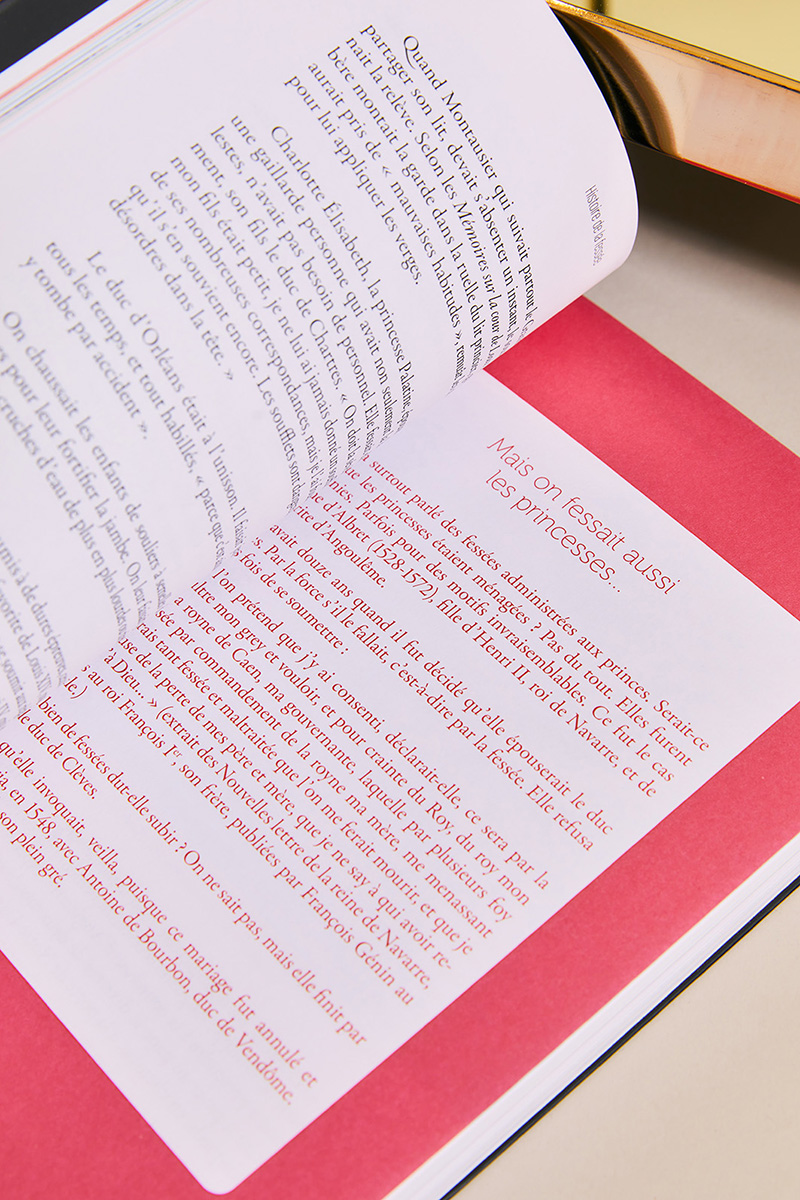 Histoire de la fessée
Quand Montausier qui suivait partout le
partager son lit, devait s'absenter un instant, le
nait la relève. Selon les Mémoires sur la cour de
bère montait la garde dans la ruelle du lit
aurait pris de « mauvaises habitudes »,
pour lui appliquer les verges.
Charlotte Élisabeth, la princesse Palatine,
une gaillarde personne qui avait non seulement
lestes, n'avait pas besoin de personnel. Elle
ment, son fils le duc de Chartres. « On
mon fils était petit, je ne lui ai jamais donné
de ses nombreuses correspondances, mais je l'ai
qu'il s'en souvient encore. Les soufflets sont
désordres dans la tête. »
Le duc d'Orléans était à l'unisson. Il
tous les temps, et tout habillés, « parce que
y tombe par accident ».
On chaussait les enfants de souliers à
pour leur fortifier la jambe. On
cruches d'eau de plus en plus
à de dures épreuves,
de Louis
Mais on fessait aussi
les princesses...
surtout parlé des fessées administrées aux princes. Serait-ce
que les princesses étaient ménagées ? Pas du tout. Elles furent
Parfois pour des motifs invraisemblables. Ce fut le cas
d'Albret (1528-1572), fille d'Henri II, roi de Navarre, et de
d'Angoulême.
avait douze ans quand il fut décidé qu'elle épouserait le duc
Par la force s'il le fallait, c'est-à-dire par la fessée. Elle refusa
fois de se soumettre :
l'on prétend que j'y ai consenti, déclarait-elle, ce sera par la
mon grey et vouloir, et pour crainte du Roy, du roy mon
a royne de Caen, ma gouvernante, laquelle par plusieurs foy
par commandement de la royne ma mère, me menassant
tant fessée et maltraitée que l'on me ferait mourir, et que je
de la perte de mes père et mère, que je ne say à qui avoir re-
à Dieu... » (extrait des Nouvelles lettre de la reine de Navarre,
au roi François Ier, son frère, publiées par François Génin au
bien de fessées dut-elle subir ? On ne sait pas, mais elle finit par
le duc de Clèves.
qu'elle invoquait, veilla, puisque ce mariage fut annulé et
en 1548, avec Antoine de Bourbon, duc de Vendôme.
son plein gré.